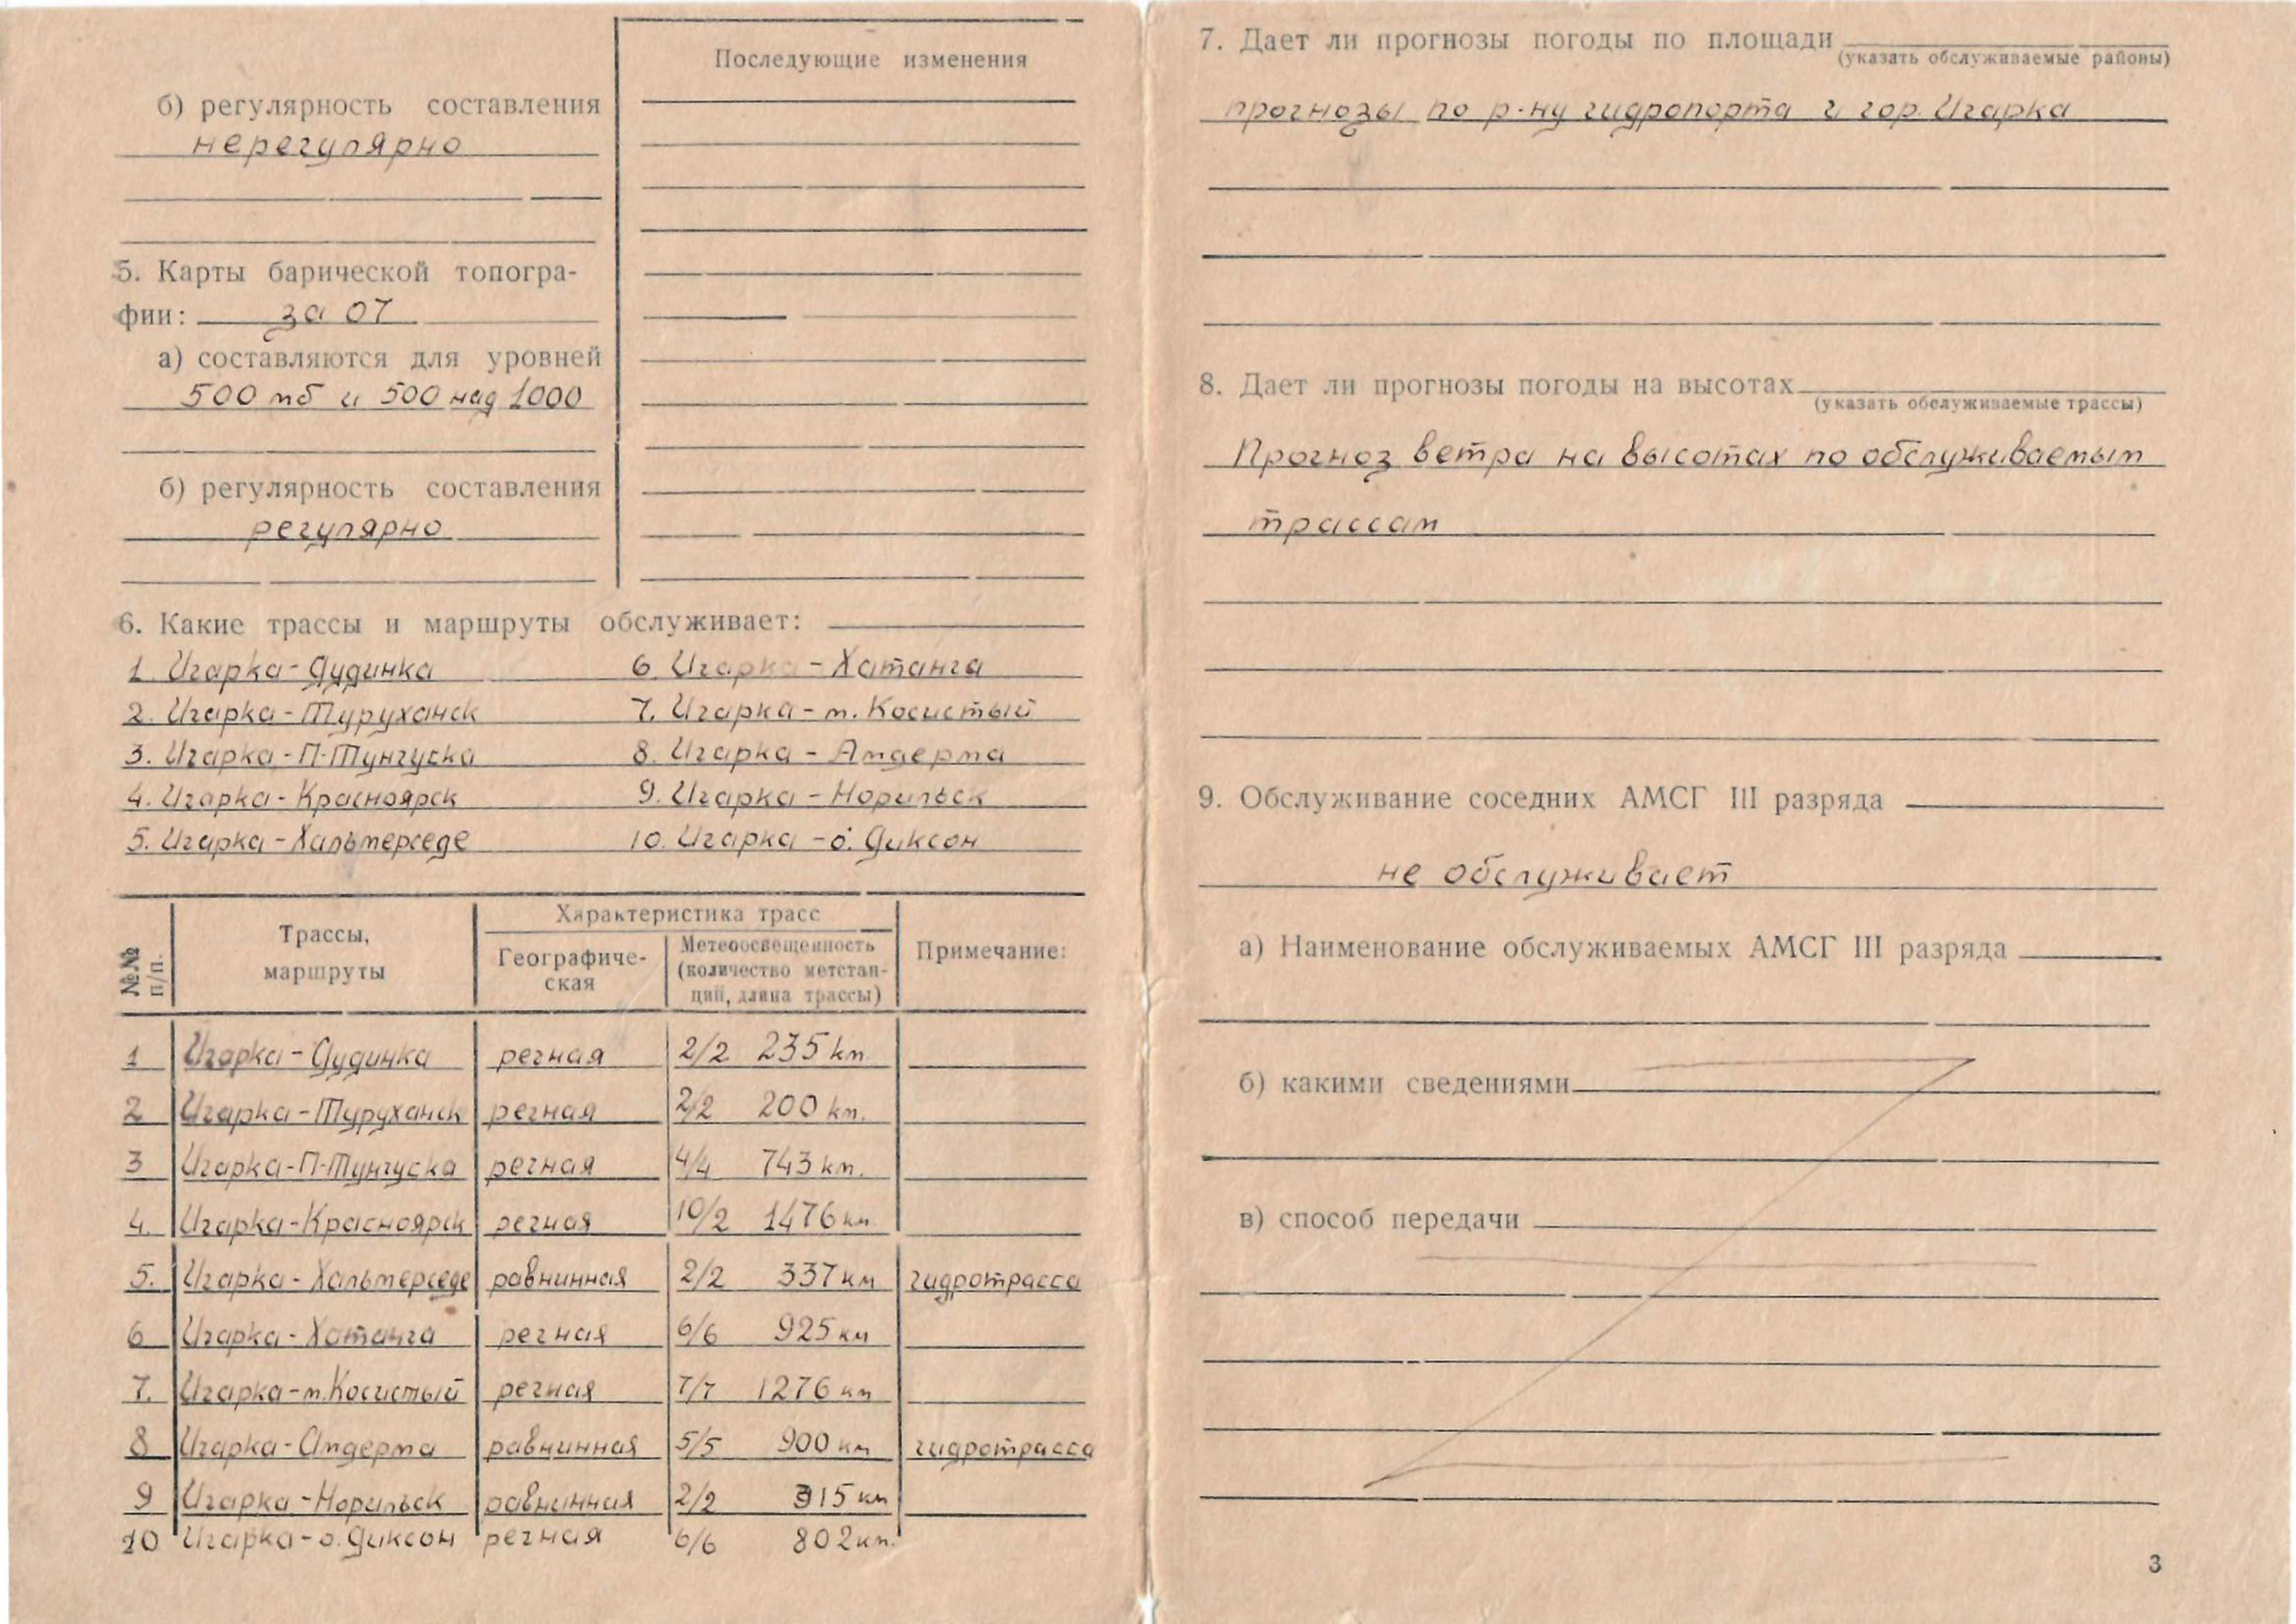 Последующие изменения
б) регулярность составления
нерегулярно
5. Карты барической топогра-
фии: за 07
а) составляются для уровней
500 мб и 500 над 1000
б) регулярность составления
регулярно
6. Какие трассы и маршруты обслуживает:
1. Игарка-Дудинка 6. Игарка-Хатанга
2. Игарка-Туруханск 7. Игарка-м. Косистый
3. Игарка-П-Тунгуска 8. Игарка-Амдерма
4. Игарка-Красноярск 9. Игарка-Норильск
5. Игарка-Хальмерседе 10. Игарка-о. Диксон
№№ п/п. Трассы, маршруты Характеристика трасс Примечание:
Географиче-
ская
Метеоосвещенность
(количество метстан-
ций, длина трассы)
1 Игарка-Дудинка речная 2/2 235 км.
2 Игарка-Туруханск речная 2/2 200 км.
3 Игарка-П-Тунгуска речная 4/4 743 км.
4. Игарка-Красноярск речная 10/2 1476 км
5. Игарка-Хальмерседе равнинная 2/2 337 км гидротрасса
6 Игарка-Хатанга речная 6/6 925 км
7. Игарка-м. Косистый речная 7/7 1276 км
8 Игарка-Амдерма равнинная 5/5 900 км гидротрасса
9 Игарка-Норильск равнинная 2/2 315 км
10 Игарка-о. Диксон речная 6/6 802 км.
7. Дает ли прогнозы погоды по площади
(указать обслуживаемые районы)
прогнозы по р-ну гидропорта и гор. Игарка
8. Дает ли прогнозы погоды на высотах
(указать обслуживаемые трассы)
Прогноз ветра на высотах по обслуживаемым
трассам
9. Обслуживание соседних АМСГ III разряда
не обслуживает
а) Наименование обслуживаемых АМСГ III разряда
б) какими сведениями
в) способ передачи
3